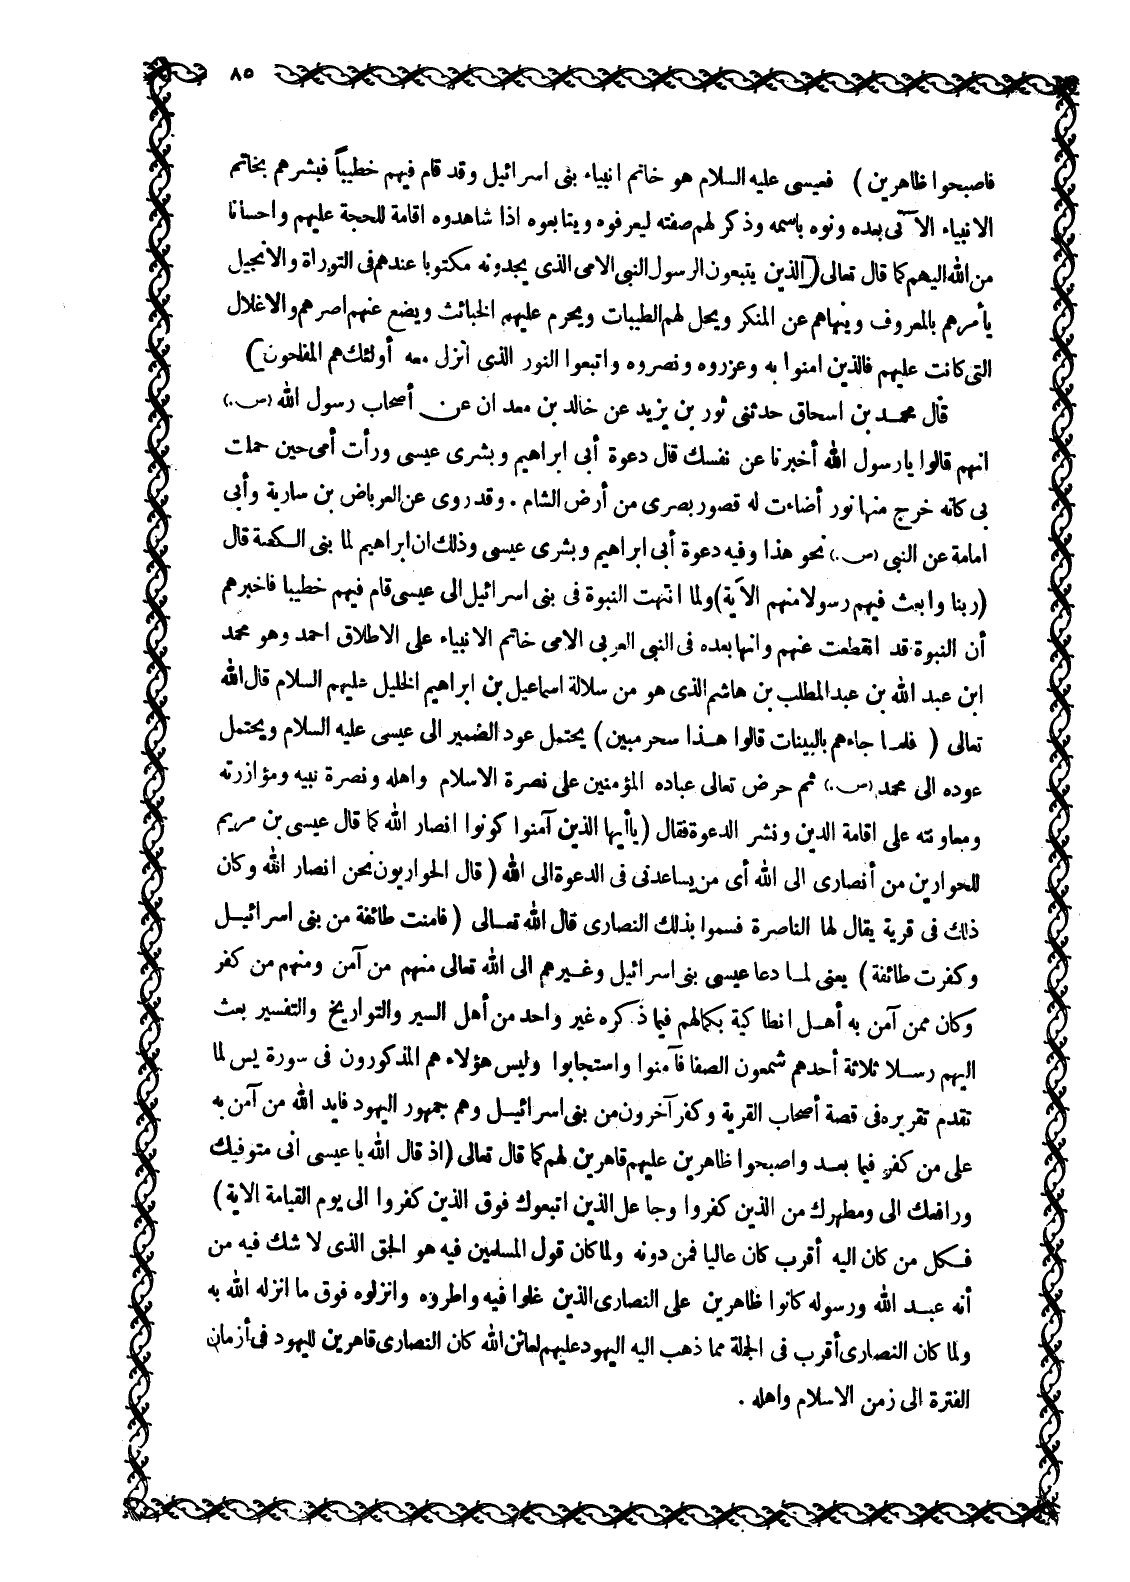 ٨٥
فاصبحوا ظاهرين ) فعيسى عليه السلام هو خاتم انبياء بنى اسرائيل وقد قام فيهم خطيباً فبشرهم بخاتم
الانبياء الآتى بعده ونوه باسمه وذكر لهم صفته ليعرفوه ويتابعوه اذا شاهدوه اقامة للحجة عليهم واحسانا
من الله اليهم كما قال تعالى (الذين يتبعون الرسول النبى الامى الذى يجدونه مكتوبا عندهم فى التوراة والانجيل
يأمرهم بالمعروف وينهاهم عن المنكر ويحل لهم الطيبات ويحرم عليهم الخبائث ويضع عنهم اصرهم والاغلال
التى كانت عليهم فالذين امنوا به وعزروه ونصروه واتبعوا النور الذى أنزل معه أولئك هم المفلحون )
قال محمد بن اسحاق حدثنى ثور بن يزيد عن خالد بن معدان عن أصحاب رسول الله (ص.)
انهم قالوا يارسول الله أخبرنا عن نفسك قال دعوة أبى ابراهيم وبشرى عيسى ورأت أمى حين حملت
بى كانه خرج منها نور أضاءت له قصور بصرى من أرض الشام . وقد روى عن العرباض بن سارية وأبى
امامة عن النبى (ص.) نحو هذا وفيه دعوة أبى ابراهيم وبشرى عيسى وذلك ان ابراهيم لما بنى الكعبة قال
(ربنا وابعث فيهم رسولا منهم الآية) ولما انتهت النبوة فى بنى اسرائيل الى عيسى قام فيهم خطيبا فاخبرهم
أن النبوة قد انقطعت عنهم وانها بعده فى النبى العربى الامى خاتم الانبياء على الاطلاق احمد وهو محمد
ابن عبد الله بن عبد المطلب بن هاشم الذى هو من سلالة اسماعيل بن ابراهيم الخليل عليهم السلام قال الله
تعالى ( فلما جاءهم بالبينات قالوا هذا سحر مبين ) يحتمل عود الضمير الى عيسى عليه السلام ويحتمل
عوده الى محمد (ص.) ثم حرض تعالى عباده المؤمنين على نصرة الاسلام واهله ونصرة نبيه ومؤازرته
ومعاونته على اقامة الدين ونشر الدعوة فقال (يأأيها الذين آمنوا كونوا انصار الله كما قال عيسى بن مريم
للحوارين من أنصارى الى الله أى من يساعدنى فى الدعوة الى الله ( قال الحواريون نحن انصار الله وكان
ذلك فى قرية يقال لها الناصرة فسموا بذلك النصارى قال الله تعالى ( فامنت طائفة من بنى اسرائيل
وكفرت طائفة ) يعنى لما دعا عيسى بنى اسرائيل وغيرهم الى الله تعالى منهم من آمن ومنهم من كفر
وكان ممن آمن به أهل انطاكية بكمالهم فيما ذكره غير واحد من أهل السير والتواريخ والتفسير بعث
اليهم رسلا ثلاثة أحدهم شمعون الصفا فآمنوا واستجابوا وليس هؤلاء هم المذكورون فى سورة يس لما
تقدم تقريره فى قصة أصحاب القرية وكفر آخرون من بنى اسرائيل وهم جمهور اليهود فايد الله من آمن به
على من كفر فيما بعد واصبحوا ظاهرين عليهم قاهرين لهم كما قال تعالى (اذ قال الله يا عيسى انى متوفيك
ورافعك الى ومطهرك من الذين كفروا وجاعل الذين اتبعوك فوق الذين كفروا الى يوم القيامة الاية )
فكل من كان اليه أقرب كان عاليا فمن دونه ولما كان قول المسلمين فيه هو الحق الذى لا شك فيه من
أنه عبد الله ورسوله كانوا ظاهرين على النصارى الذين غلوا فيه واطروه وانزلوه فوق ما انزله الله به
ولما كان النصارى أقرب فى الجملة مما ذهب اليه اليهود عليهم لعائن الله كان النصارى قاهرين لليهود فى أزمان
الفترة الى زمن الاسلام واهله .